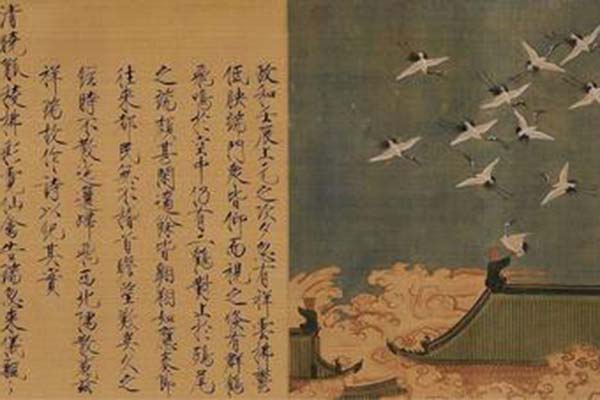 政和壬辰上元之次夕忽有祥雲拂鬱
低映端門衆皆仰而視之倏有群鶴
飛鳴於空中仍有二鶴對止於鴟尾
之端頗甚閑適餘皆翱翔如應奏節
往來都民無不稽首瞻望歎異久之
經時不散迤邐歸飛西北隅散感兹
祥瑞故作詩以紀其實
清曉觚稜拂彩霓仙禽告瑞忽來儀飄〻